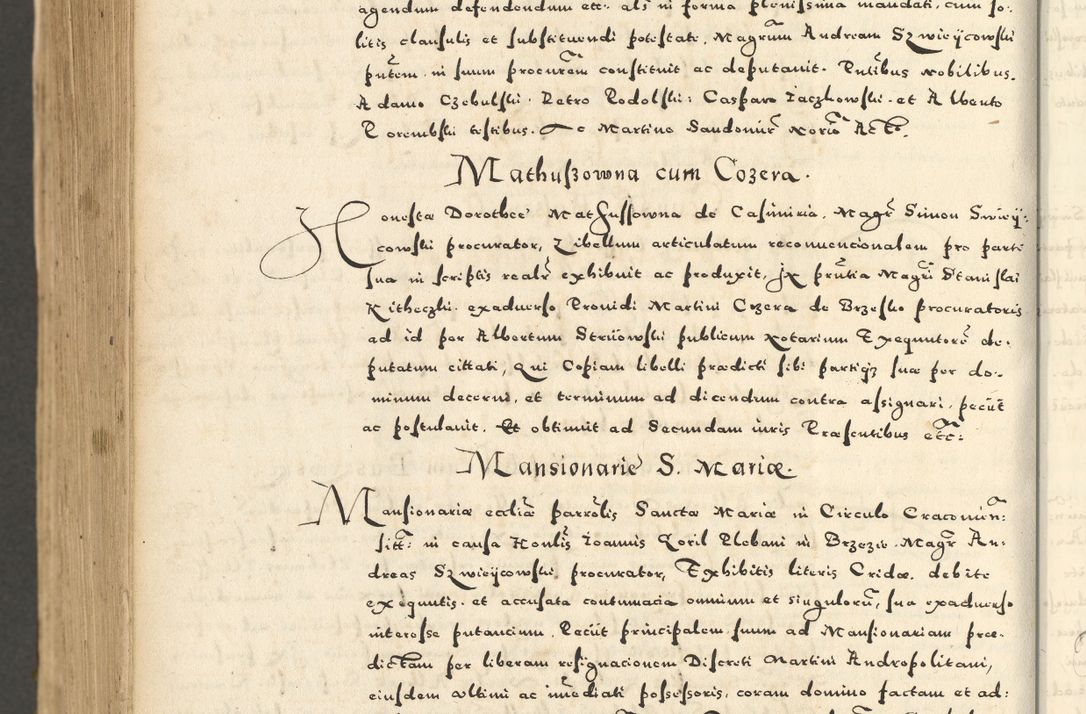 agendum defendendum etc. als in forma plenissima mandati, cum so:
litis clausulis et substituendi potestate. Magrum Andream Szwieÿcowski
pntem in suum procurem constituit ac deputauit. Pntibus nobilibus.
Adamo Czebulski. Petro Podolski: Casparo Iaczkowski. et Alberto
Porembski testibus. Ac Martino Sandomir norio Acto.
Mathuszowna cum Cozera.
Honesta Dorothee Mathussowna de Casimiria. Magr Simon Swieÿ:
cowski procurator, Libellum articulatum reconuencionalem pro parte
sua in scriptis realr exhibuit ac produxit, In prntia Magri Stanislai
Kitheczki. exaduerso Prouidi Martini Cozera de Brzesko procuratoris
ad id per Albertum Striiowski publicum notarium Exequutore de:
putatum cittati, Qui Copiam libelli prædicti sibi partiq sue per do:
minum decerni, et terminum ad dicendum contra assignari. peciit
ac postulauit. Et obtinuit ad Secundam iuris Præsentibus etc:
Mansionarie S. Mariæ.
Mansionariæ eccliæ parrolis Sanctæ Mariæ in Circulo Cracouien:
sitt: in causa Honlis Ioannis Goril Plebani in Brzezie. Magr An:
dreas Szwieÿcowski procurator, Exhibitis literis Cridæ. debite
exequutis. et accusata contumacia omnium et singuloru, sua exaduerso
interesse putancium. Peciit principalem suum ad Mansionariam præ:
dictam per liberam resignacionem Discreti Martini Andropolitani,
eiusdem vltimi ac imediati possessoris. coram domino factam et ad: